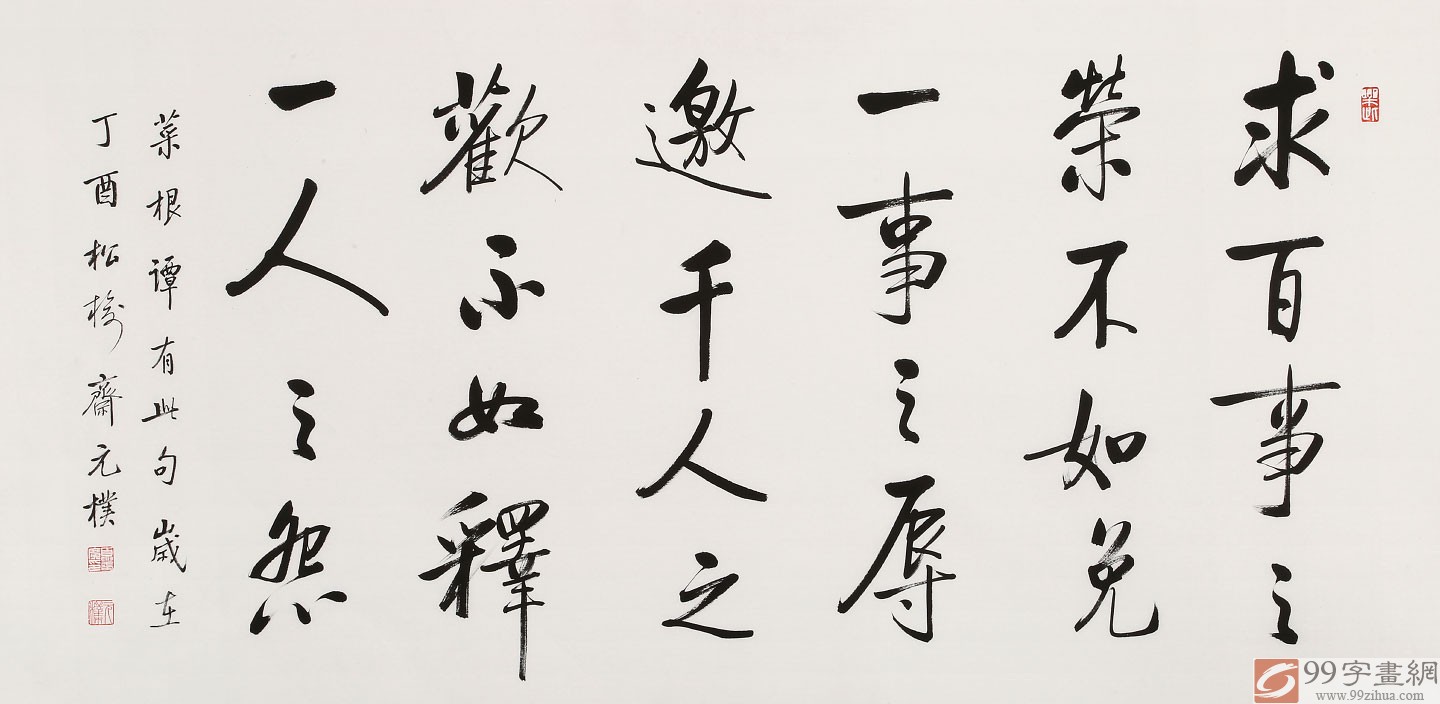 求百事之
榮不如免
一事之辱
邀千人之
歡不如釋
一人之怨
菜根谭有此句歲在
丁酉松梅齋元樸
99字畫網
www.99zihua.com